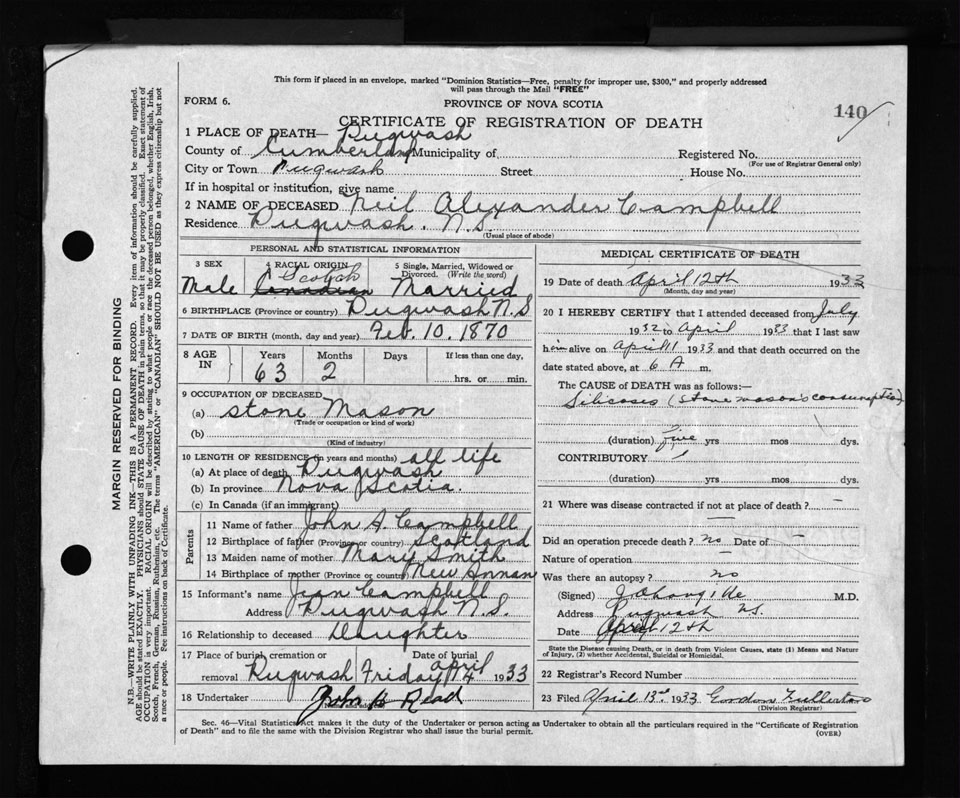 This form if placed in an envelope, marked "Dominion Statistics—Free, penalty for improper use, $300," and properly addressed
will pass through the Mail "FREE"
FORM 6.
PROVINCE OF NOVA SCOTIA
140
CERTIFICATE OF REGISTRATION OF DEATH
1 PLACE OF DEATH— Pugwash
County of Cumberland Municipality of Registered No.
(For use of Registrar General only)
City or Town Pugwash Street House No.
If in hospital or institution, give name
2 NAME OF DECEASED Neil Alexander Campbell
Residence Pugwash. N.S.
(Usual place of abode)
PERSONAL AND STATISTICAL INFORMATION
3 SEX 4 RACIAL ORIGIN 5 Single, Married, Widowed or Divorced. (Write the word)
Male Scotch Canadian Married
6 BIRTHPLACE (Province or country) Pugwash N.S
7 DATE OF BIRTH (month, day and year) Feb. 10, 1870
8 AGE IN Years Months Days If less than one day,
63 2 hrs. or min.
9 OCCUPATION OF DECEASED
(a) Stone Mason
(Trade or occupation or kind of work)
(b)
(Kind of industry)
10 LENGTH OF RESIDENCE (in years and months) all life
(a) At place of death Pugwash
(b) In province Nova Scotia.
(c) In Canada (if an immigrant)
Parents
11 Name of father John A. Campbell
12 Birthplace of father (Province or country) Scotland
13 Maiden name of mother Mary Smith
14 Birthplace of mother (Province or country) New Annan
15 Informant's name Jean Campbell
Address Pugwash N.S.
16 Relationship to deceased Daughter
17 Place of burial, cremation or removal Date of burial
Pugwash Friday April 14 1933
18 Undertaker John H Read
MEDICAL CERTIFICATE OF DEATH
19 Date of death April 12th 1933
(Month, day and year)
20 I HEREBY CERTIFY that I attended deceased from July
1932 to April 1933 that I last saw
him alive on April 11 1933 and that death occurred on the
date stated above, at 6 A m.
The CAUSE OF DEATH was as follows:—
Silicoses (Stone mason's consumption)
(duration) Five yrs mos dys.
CONTRIBUTORY
(duration) yrs mos dys.
21 Where was disease contracted if not at place of death? —
Did an operation precede death? no Date of —
Nature of operation —
Was there an autopsy? no
(Signed) M.D.
Address Pugwash N.S.
Date April 12th
State the Disease causing Death, or in death from Violent Causes, state (1) Means and Nature
of Injury, (2) whether Accidental, Suicidal or Homicidal.
22 Registrar's Record Number
23 Filed April 13th 1933 Gordon Fullerton
(Division Registrar)
Sec. 46—Vital Statistics Act makes it the duty of the Undertaker or person acting as Undertaker to obtain all the particulars required in the "Certificate of Registration
of Death" and to file the same with the Division Registrar who shall issue the burial permit.
(OVER)
MARGIN RESERVED FOR BINDING
N.B.—WRITE PLAINLY WITH UNFADING INK—THIS IS A PERMANENT RECORD. Every item of information should be carefully supplied.
AGE should be stated EXACTLY. PHYSICIANS should STATE CAUSE OF DEATH in plain terms, so that it may be properly classified. Exact statement of
OCCUPATION is very important. RACIAL ORIGIN will be described by stating to what people or race the deceased person belonged, whether English, Irish,
Scotch, French, German, Russian, Ruthenian, etc. The terms "AMERICAN" or "CANADIAN" SHOULD NOT BE USED as they express citizenship but not
a race or people. See instructions on back of Certificate.